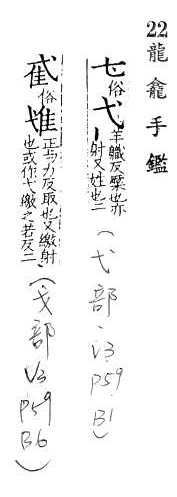 22龍龕手鑑
𠤎俗弋羊職反橜也亦
丨射又姓也二
(弋部、V3.
P59
B1)
隿俗䧹正与力反取也又繳射
也或作弋繳之若反二
(弋部
V3
P59
B6)